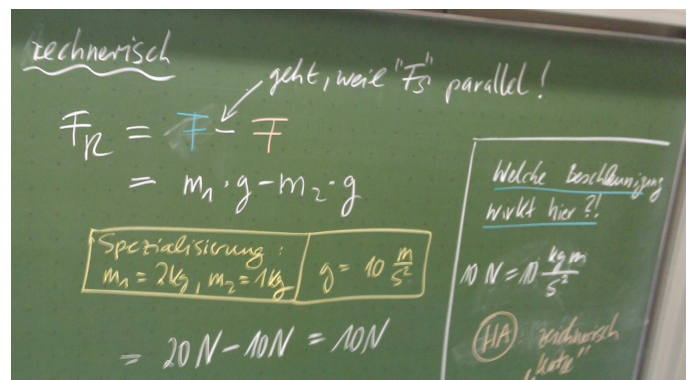 rechnerisch
geht, weil "Fs" parallel!
F_R = F - F
= m₁·g - m₂·g
Spezialisierung:
m₁ = 2kg, m₂ = 1kg
g = 10 m/s²
= 20N - 10N = 10N
Welche Beschleunigung
wirkt hier?!
10 N = 10 kg m/s²
HA zeichnerisch